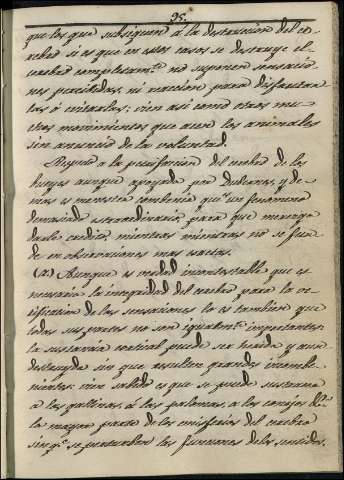 95.
que los que subsiguen á la destruccion del ce-
rebro si es que en estos casos se destruye el
cerebro completamte. no suponen sensacio
nes percibidas, ni reaccion para disfrutar
las ó evitarlas; sien asi como otros mu-
chos movimientos que acen los animales
sin anuncio de la voluntad.
Respecto á la petrificacion del cerebro de los
bueyes aunque apoyada por Duberney, y de
mas es menester combenir que un fenomeno
demasiado estraordinario para que merezca
darle credito, mientras mientras no se fun
de en observaciones mas exactas.
(2.) Aunque es verdad incontestable que es
necesaria la integridad del cerebro para la ve-
rificacion de las sensaciones lo es tambien que
todas sus partes no son igualmte. importantes:
la sustancia cortical puede ser herida y aun
destruyda sin que resulten grandes incombe-
nientes: vien sabido es que se puede sustraer
a las gallinas, á las palomas, a los conejos &a
la mayor parte de los emisferios del cerebro
sin qe. se perturben las funciones de los sentidos.